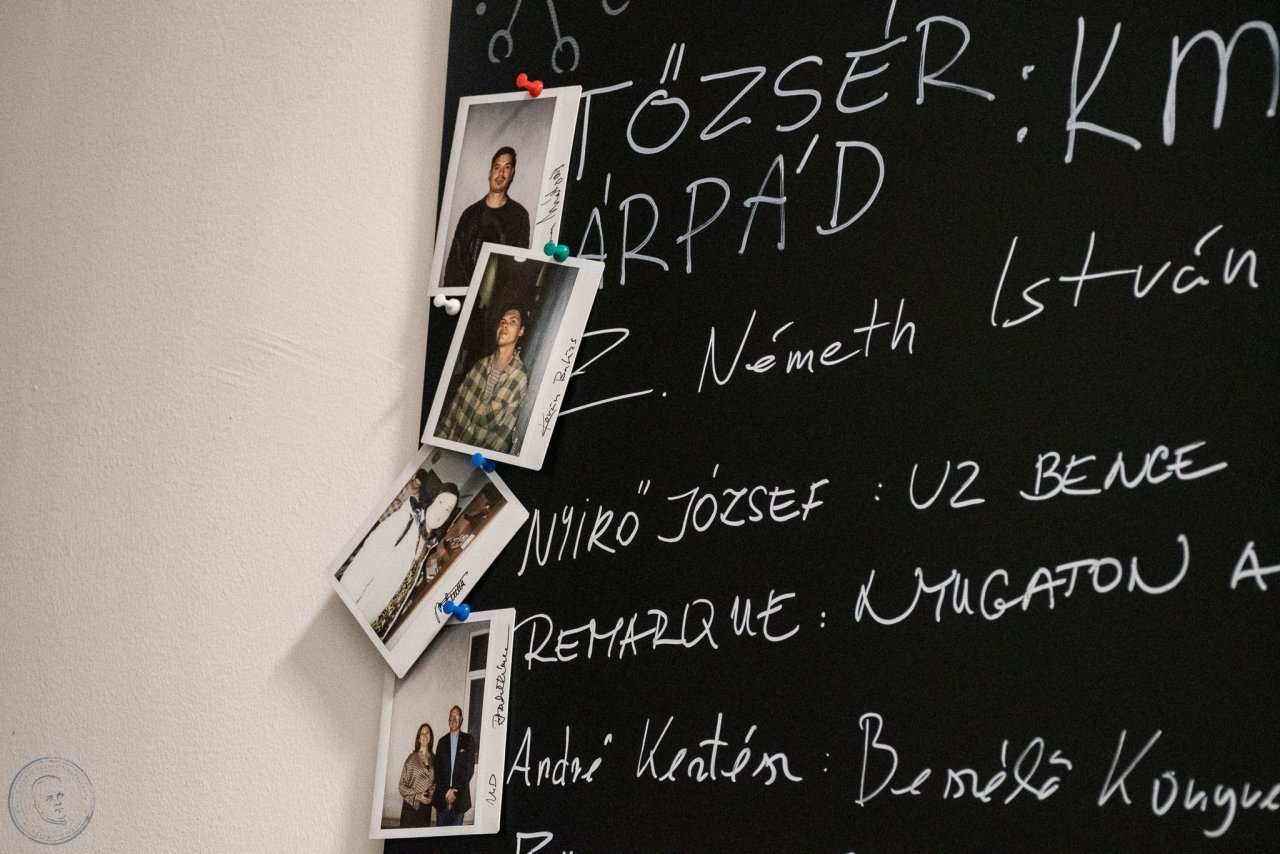 TŐZSÉR : KM
ÁRPÁD
Z. Németh István
NYIRŐ JÓZSEF : UZ BENCE
REMARQUE : NYUGATON A
André Kertész : Beszélő Könyve